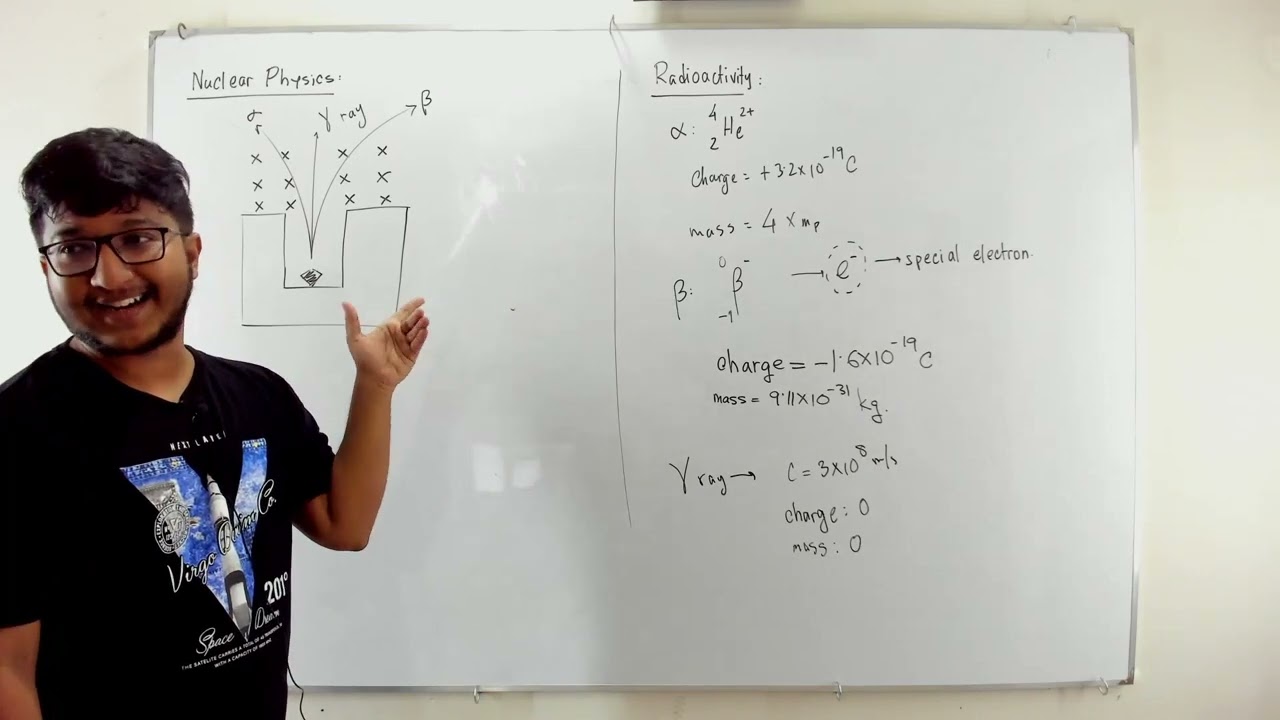 Nuclear Physics:
α γ ray β
x x x x
x x x x
x x x x
Radioactivity:
α: ⁴₂He²⁺
charge = +3.2×10⁻¹⁹C
mass = 4 × mₚ
β: ⁰₋₁β⁻ → e⁻ → special electron.
charge = −1.6×10⁻¹⁹ C
mass = 9.11×10⁻³¹ kg.
γ ray → C = 3×10⁸ m/s
charge: 0
mass: 0
NEXT LAYE
Virgo
Co.
201
Space
THE SATELLITE CARRIES A TOTAL OF
WITH A CAPACITY OF